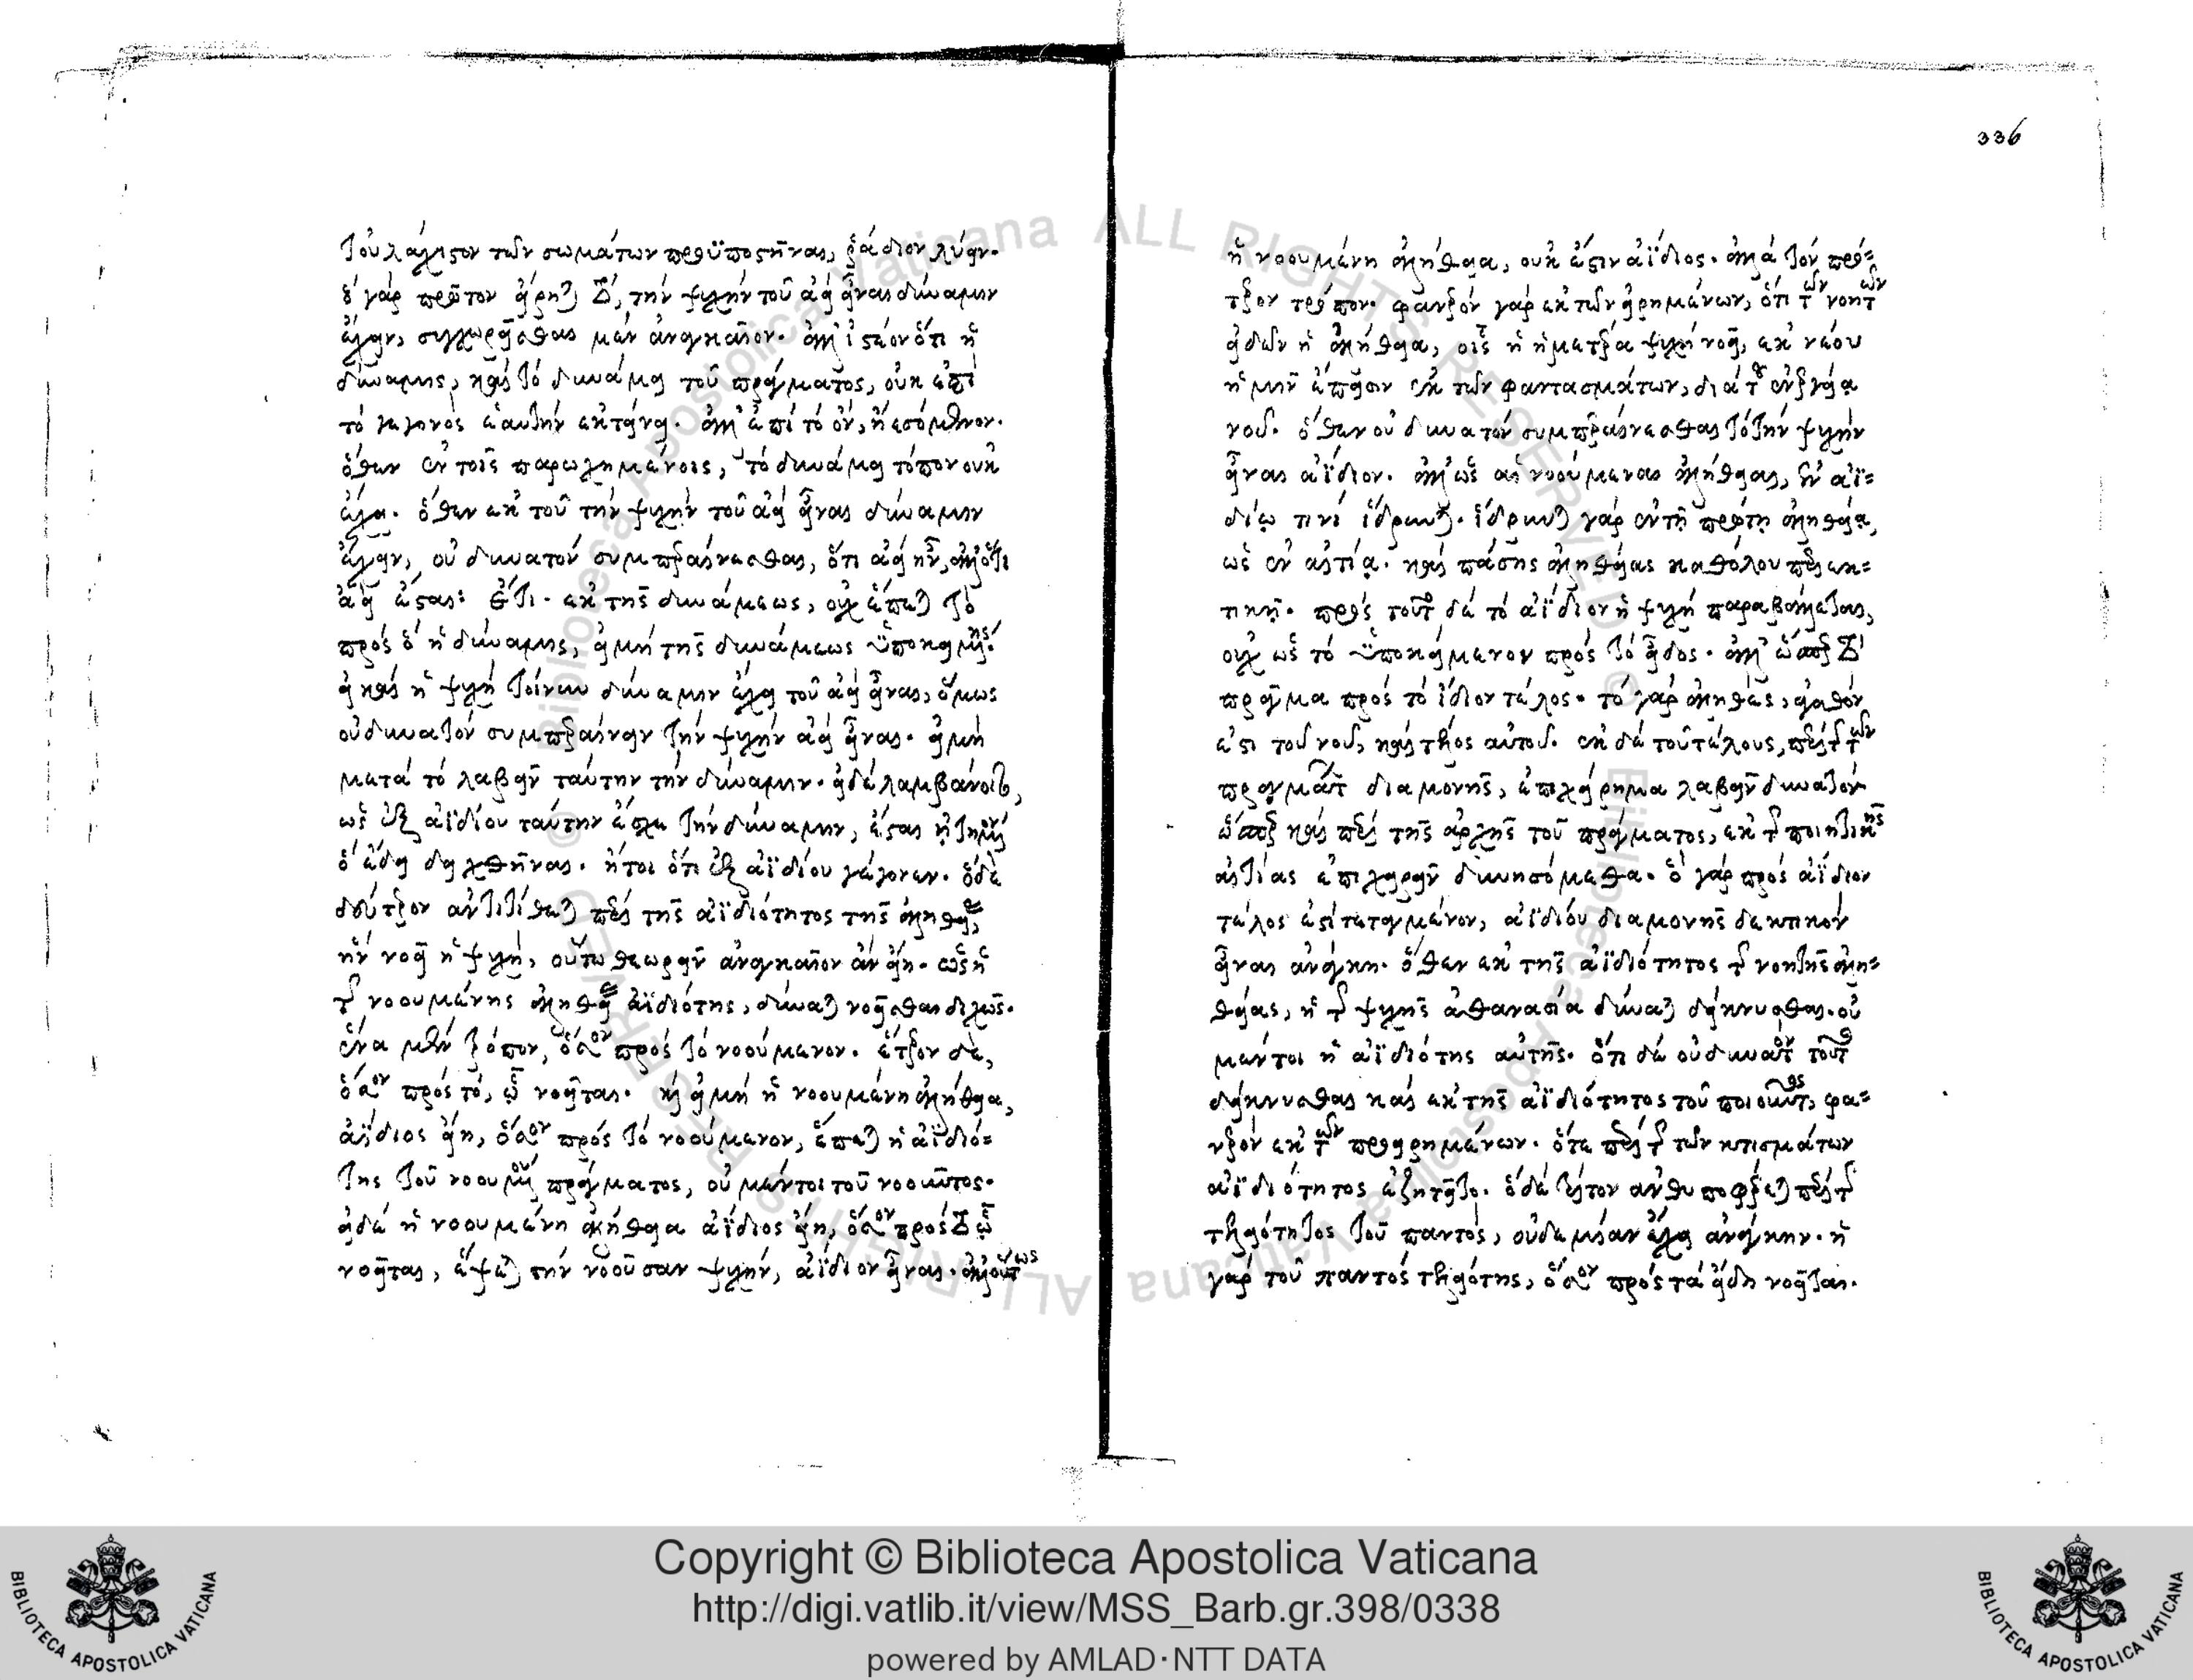 τοὐλάχιστον τῶν σωμάτων προϋποστῆναι, ῥάδιον λύειν.
ὃ γὰρ πρῶτον εἴρηται τὸ, τὴν ψυχὴν τοῦ ἀεὶ εἶναι δύναμιν
ἔχειν, συγχωρεῖσθαι μὲν ἀναγκαῖον. ἀλλ' ἰστέον ὅτι ἡ
δύναμις, καὶ τὸ δυνάμει τοῦ πράγματος, οὐκ ἐπὶ
τὸ γεγονὸς ἑαυτὴν ἐκτείνει. ἀλλ' ἐπὶ τὸ ὂν, ἢ ἐσόμενον.
ὅθεν ἐν τοῖς παρῳχημένοις, τὸ δυνάμει τόπον οὐκ
ἔχει. ὅθεν ἐκ τοῦ τὴν ψυχὴν τοῦ ἀεὶ εἶναι δύναμιν
ἔχειν, οὐ δυνατὸν συμπεραίνεσθαι, ὅτι ἀεὶ ἦν, ἀλλ' ὅτι
ἀεὶ ἔσται: Ἔτι. ἐκ τῆς δυνάμεως, οὐχ ἕπεται τὸ
πρὸς ὃ ἡ δύναμις, εἰ μὴ τῆς δυνάμεως ὑποκειμένης.
εἰ καὶ ἡ ψυχὴ τοίνυν δύναμιν ἔχει τοῦ ἀεὶ εἶναι, ὅμως
οὐ δυνατὸν συμπεραίνειν τὴν ψυχὴν ἀεὶ εἶναι. εἰ μὴ
μετὰ τὸ λαβεῖν ταύτην τὴν δύναμιν. εἰ δὲ λαμβάνοιτο,
ὡς ἐξ ἀϊδίου ταύτην ἔσχε τὴν δύναμιν, ἔσται ᾐτημένον
ὃ ἔδει δειχθῆναι. ἤτοι ὅτι ἐξ ἀϊδίου γέγονεν. ὃ δὲ
δεύτερον ἀντιτίθεται περὶ τῆς ἀϊδιότητος τῆς ἀληθείας,
ἣν νοεῖ ἡ ψυχὴ, οὕτω θεωρεῖν ἀναγκαῖον ἂν εἴη. ὡς ἡ
τῆς νοουμένης ἀληθείας ἀϊδιότης, δύναται νοεῖσθαι διχῶς.
ἕνα μὲν τρόπον, ὅσον πρὸς τὸ νοούμενον. ἕτερον δὲ,
ὅσον πρὸς τὸ, ᾧ νοεῖται. καὶ εἰ μὴ ἡ νοουμένη ἀλήθεια,
ἀΐδιος εἴη, ὅσον πρὸς τὸ νοούμενον, ἕπεται ἡ ἀϊδιό=
της τοῦ νοουμένου πράγματος, οὐ μέντοι τοῦ νοοῦντος.
εἰ δὲ ἡ νοουμένη ἀλήθεια ἀΐδιος εἴη, ὅσον πρὸς τὸ ᾧ
νοεῖται, ἕψεται τὴν νοοῦσαν ψυχὴν, ἀΐδιον εἶναι. ἀλλ' οὕτως
336
ἡ νοουμένη ἀλήθεια, οὐκ ἔστιν ἀΐδιος. ἀλλὰ τὸν πρό=
τερον τρόπον. φανερὸν γὰρ ἐκ τῶν εἰρημένων, ὅτι τῶν νοητῶν
εἰδῶν ἡ ἀλήθεια, οἷς ἡ ἡμετέρα ψυχὴ νοεῖ, ἐκ νέου
ἡμῖν ἔπεισιν ἐκ τῶν φαντασμάτων, διὰ τοῦ ἐνεργείᾳ
νοῦ. ὅθεν οὐ δυνατὸν συμπεραίνεσθαι τὸ τὴν ψυχὴν
εἶναι ἀΐδιον. ἀλλ' ὡς αἱ νοούμεναι ἀλήθειαι, ἐν ἀϊ=
δίῳ τινὶ ἵδρυνται. ἵδρυνται γὰρ ἐν τῇ πρώτῃ ἀληθείᾳ,
ὡς ἐν αἰτίᾳ. καὶ πάσης ἀληθείας καθόλου περιεκ=
τικῇ. πρὸς τοῦτο δὲ τὸ ἀΐδιον ἡ ψυχὴ παραβάλλεται,
οὐχ ὡς τὸ ὑποκείμενον πρὸς τὸ εἶδος. ἀλλ' ὥσπερ τὸ
πρᾶγμα πρὸς τὸ ἴδιον τέλος. τὸ γὰρ ἀληθὲς, ἀγαθόν
ἐστι τοῦ νοῦ, καὶ τέλος αὐτοῦ. ἐκ δὲ τοῦ τέλους, περὶ τῆς τῶν
πραγμάτων διαμονῆς, ἐπιχείρημα λαβεῖν δυνατόν
ὥσπερ καὶ περὶ τῆς ἀρχῆς τοῦ πράγματος, ἐκ τῆς ποιητικῆς
αἰτίας ἐπιχειρεῖν δυνησόμεθα. ὃ γὰρ πρὸς ἀΐδιον
τέλος ἐστὶ τεταγμένον, ἀϊδίου διαμονῆς δεκτικὸν
εἶναι ἀνάγκη. ὅθεν ἐκ τῆς ἀϊδιότητος τῆς νοητῆς ἀλη=
θείας, ἡ τῆς ψυχῆς ἀθανασία δύναται δείκνυσθαι. οὐ
μέντοι ἡ ἀϊδιότης αὐτῆς. ὅτι δὲ οὐ δυνατὸν τοῦτο
δείκνυσθαι καὶ ἐκ τῆς ἀϊδιότητος τοῦ ποιοῦντος, φα=
νερὸν ἐκ τῶν προειρημένων. ὅτε περὶ τῆς τῶν κτισμάτων
ἀϊδιότητος ἐζητεῖτο. ὃ δὲ τρίτον ἀνθυποφέρεται περὶ τῆς
τελειότητος τοῦ παντὸς, οὐδεμίαν ἔχει ἀνάγκην. ἡ
γὰρ τοῦ παντὸς τελειότης, ὅσον πρὸς τὰ εἴδη νοεῖται.
Copyright © Biblioteca Apostolica Vaticana
http://digi.vatlib.it/view/MSS_Barb.gr.398/0338
powered by AMLAD·NTT DATA